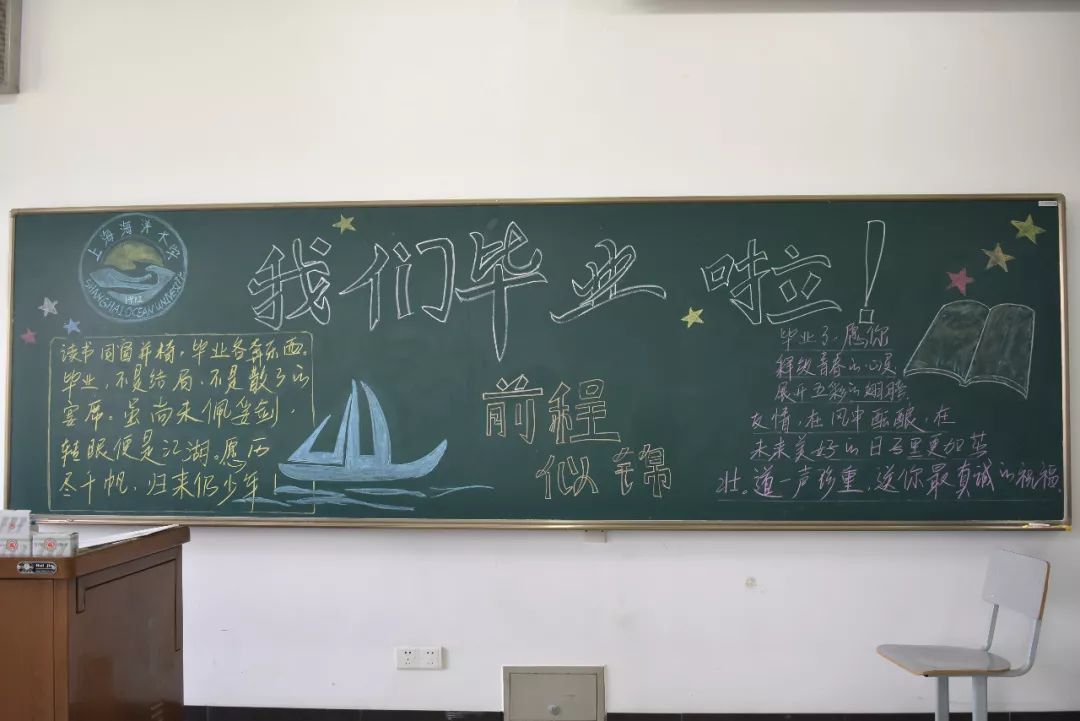 上海海洋大学
1912
SHANGHAI OCEAN UNIVERSITY
我们毕业啦！
读书同窗并椅，毕业各奔东西。
毕业，不是结局，不是散了的
宴席。虽尚未佩妥剑，
转眼便是江湖。愿历
尽千帆，归来仍少年！
前程
似锦
毕业了，愿你
释放青春的心灵
展开五彩的翅膀
友情，在风中酝酿，在
未来美好的日子里更加茁
壮。道一声珍重，送你最真诚的祝福